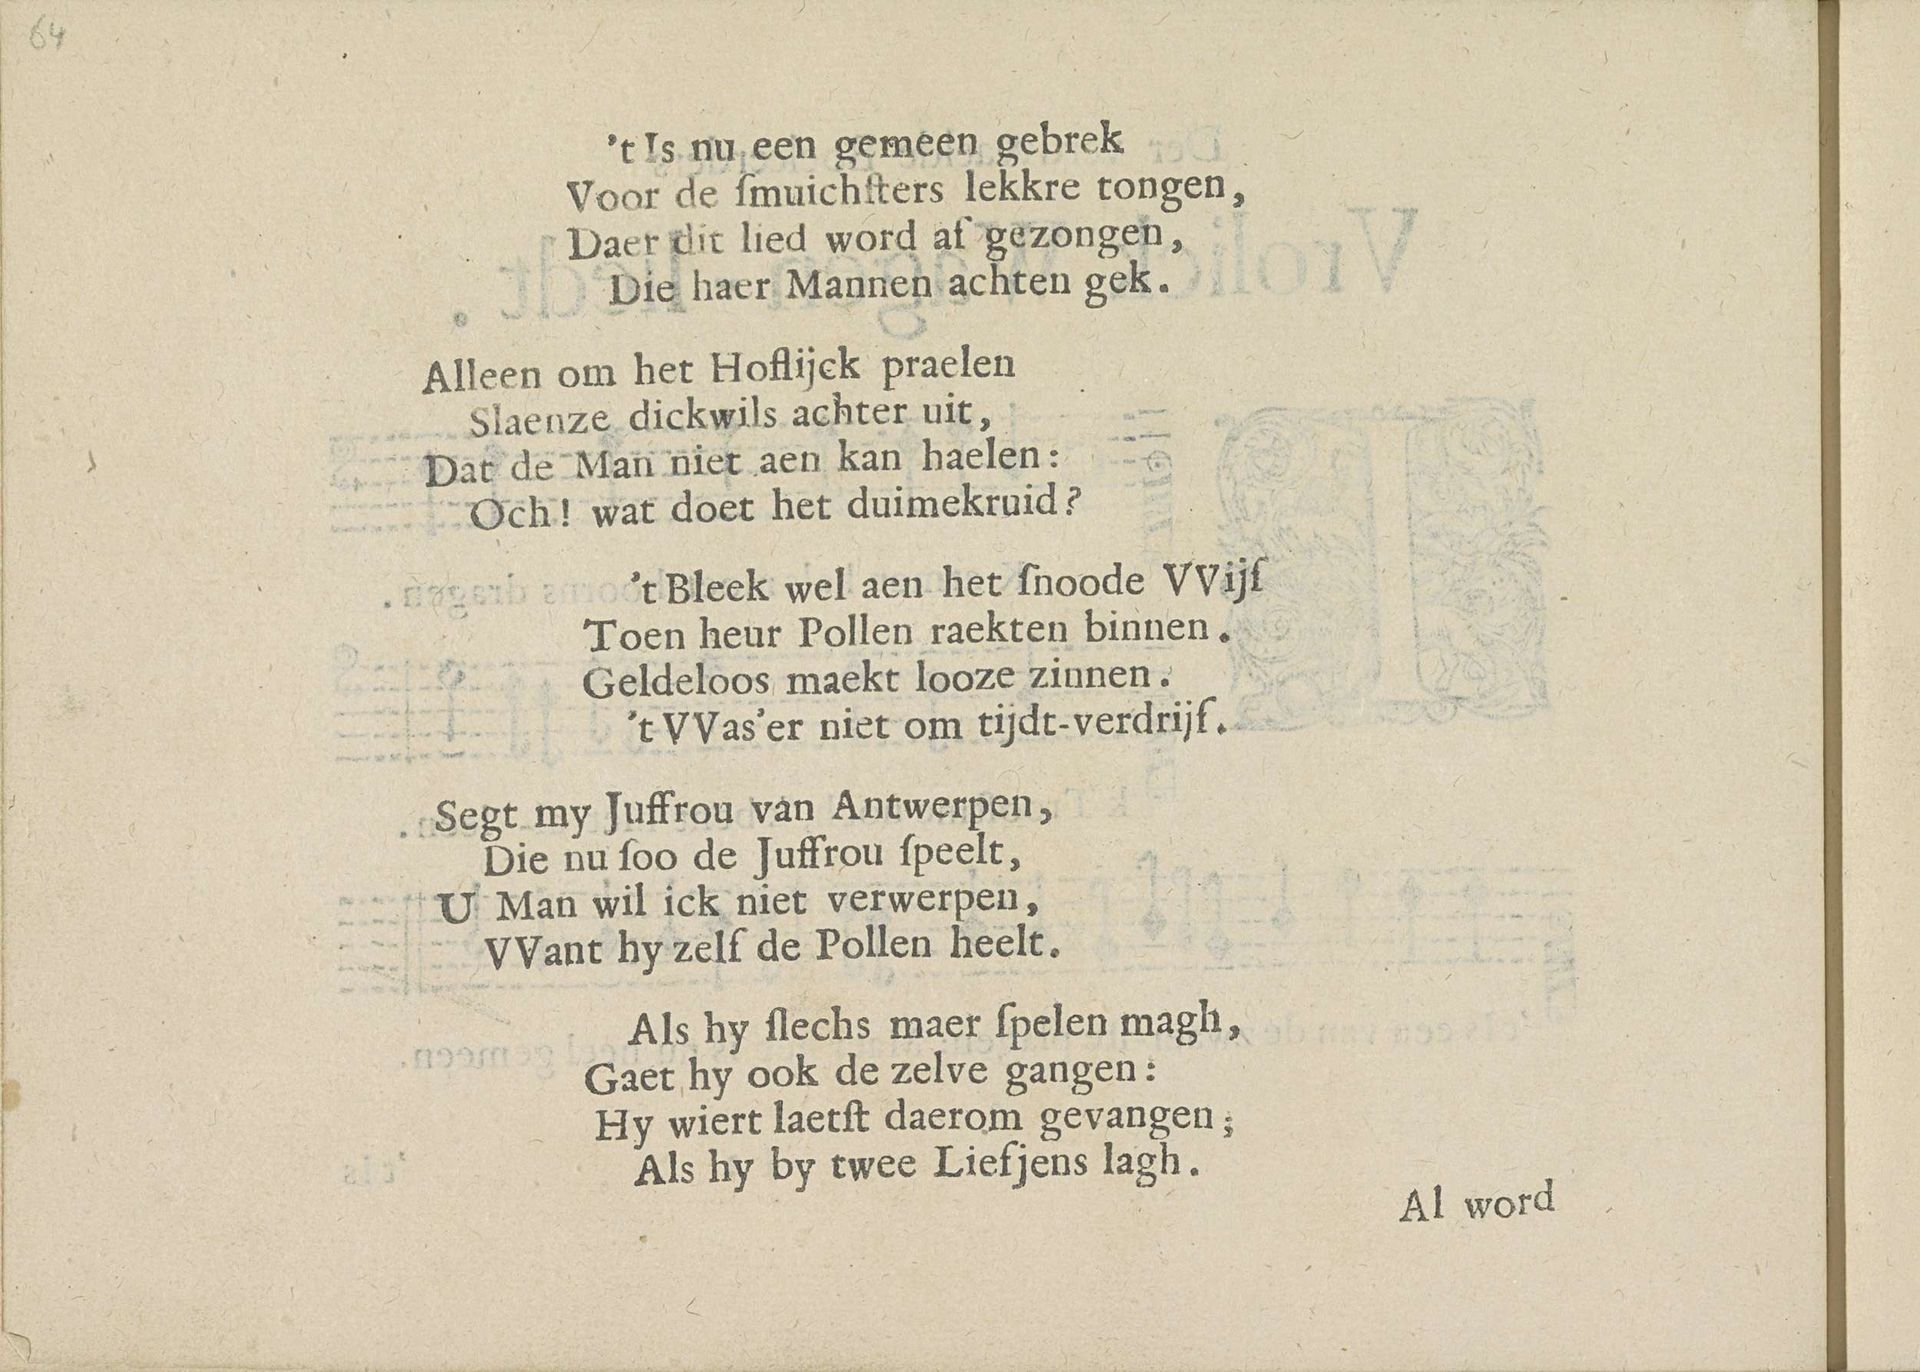 64
't Is nu een gemeen gebrek
Voor de ſmuichſters lekkre tongen,
Daer dit lied word af gezongen,
Die haer Mannen achten gek.
Alleen om het Hoflijck praelen
Slaenze dickwils achter uit,
Dat de Man niet aen kan haelen:
Och! wat doet het duimekruid?
't Bleek wel aen het ſnoode VVijf
Toen heur Pollen raekten binnen.
Geldeloos maekt looze zinnen.
't VVas'er niet om tijdt-verdrijf.
Segt my Juffrou van Antwerpen,
Die nu ſoo de Juffrou ſpeelt,
U Man wil ick niet verwerpen,
VVant hy zelf de Pollen heelt.
Als hy ſlechs maer ſpelen magh,
Gaet hy ook de zelve gangen:
Hy wiert laetſt daerom gevangen;
Als hy by twee Liefjens lagh.
Al word